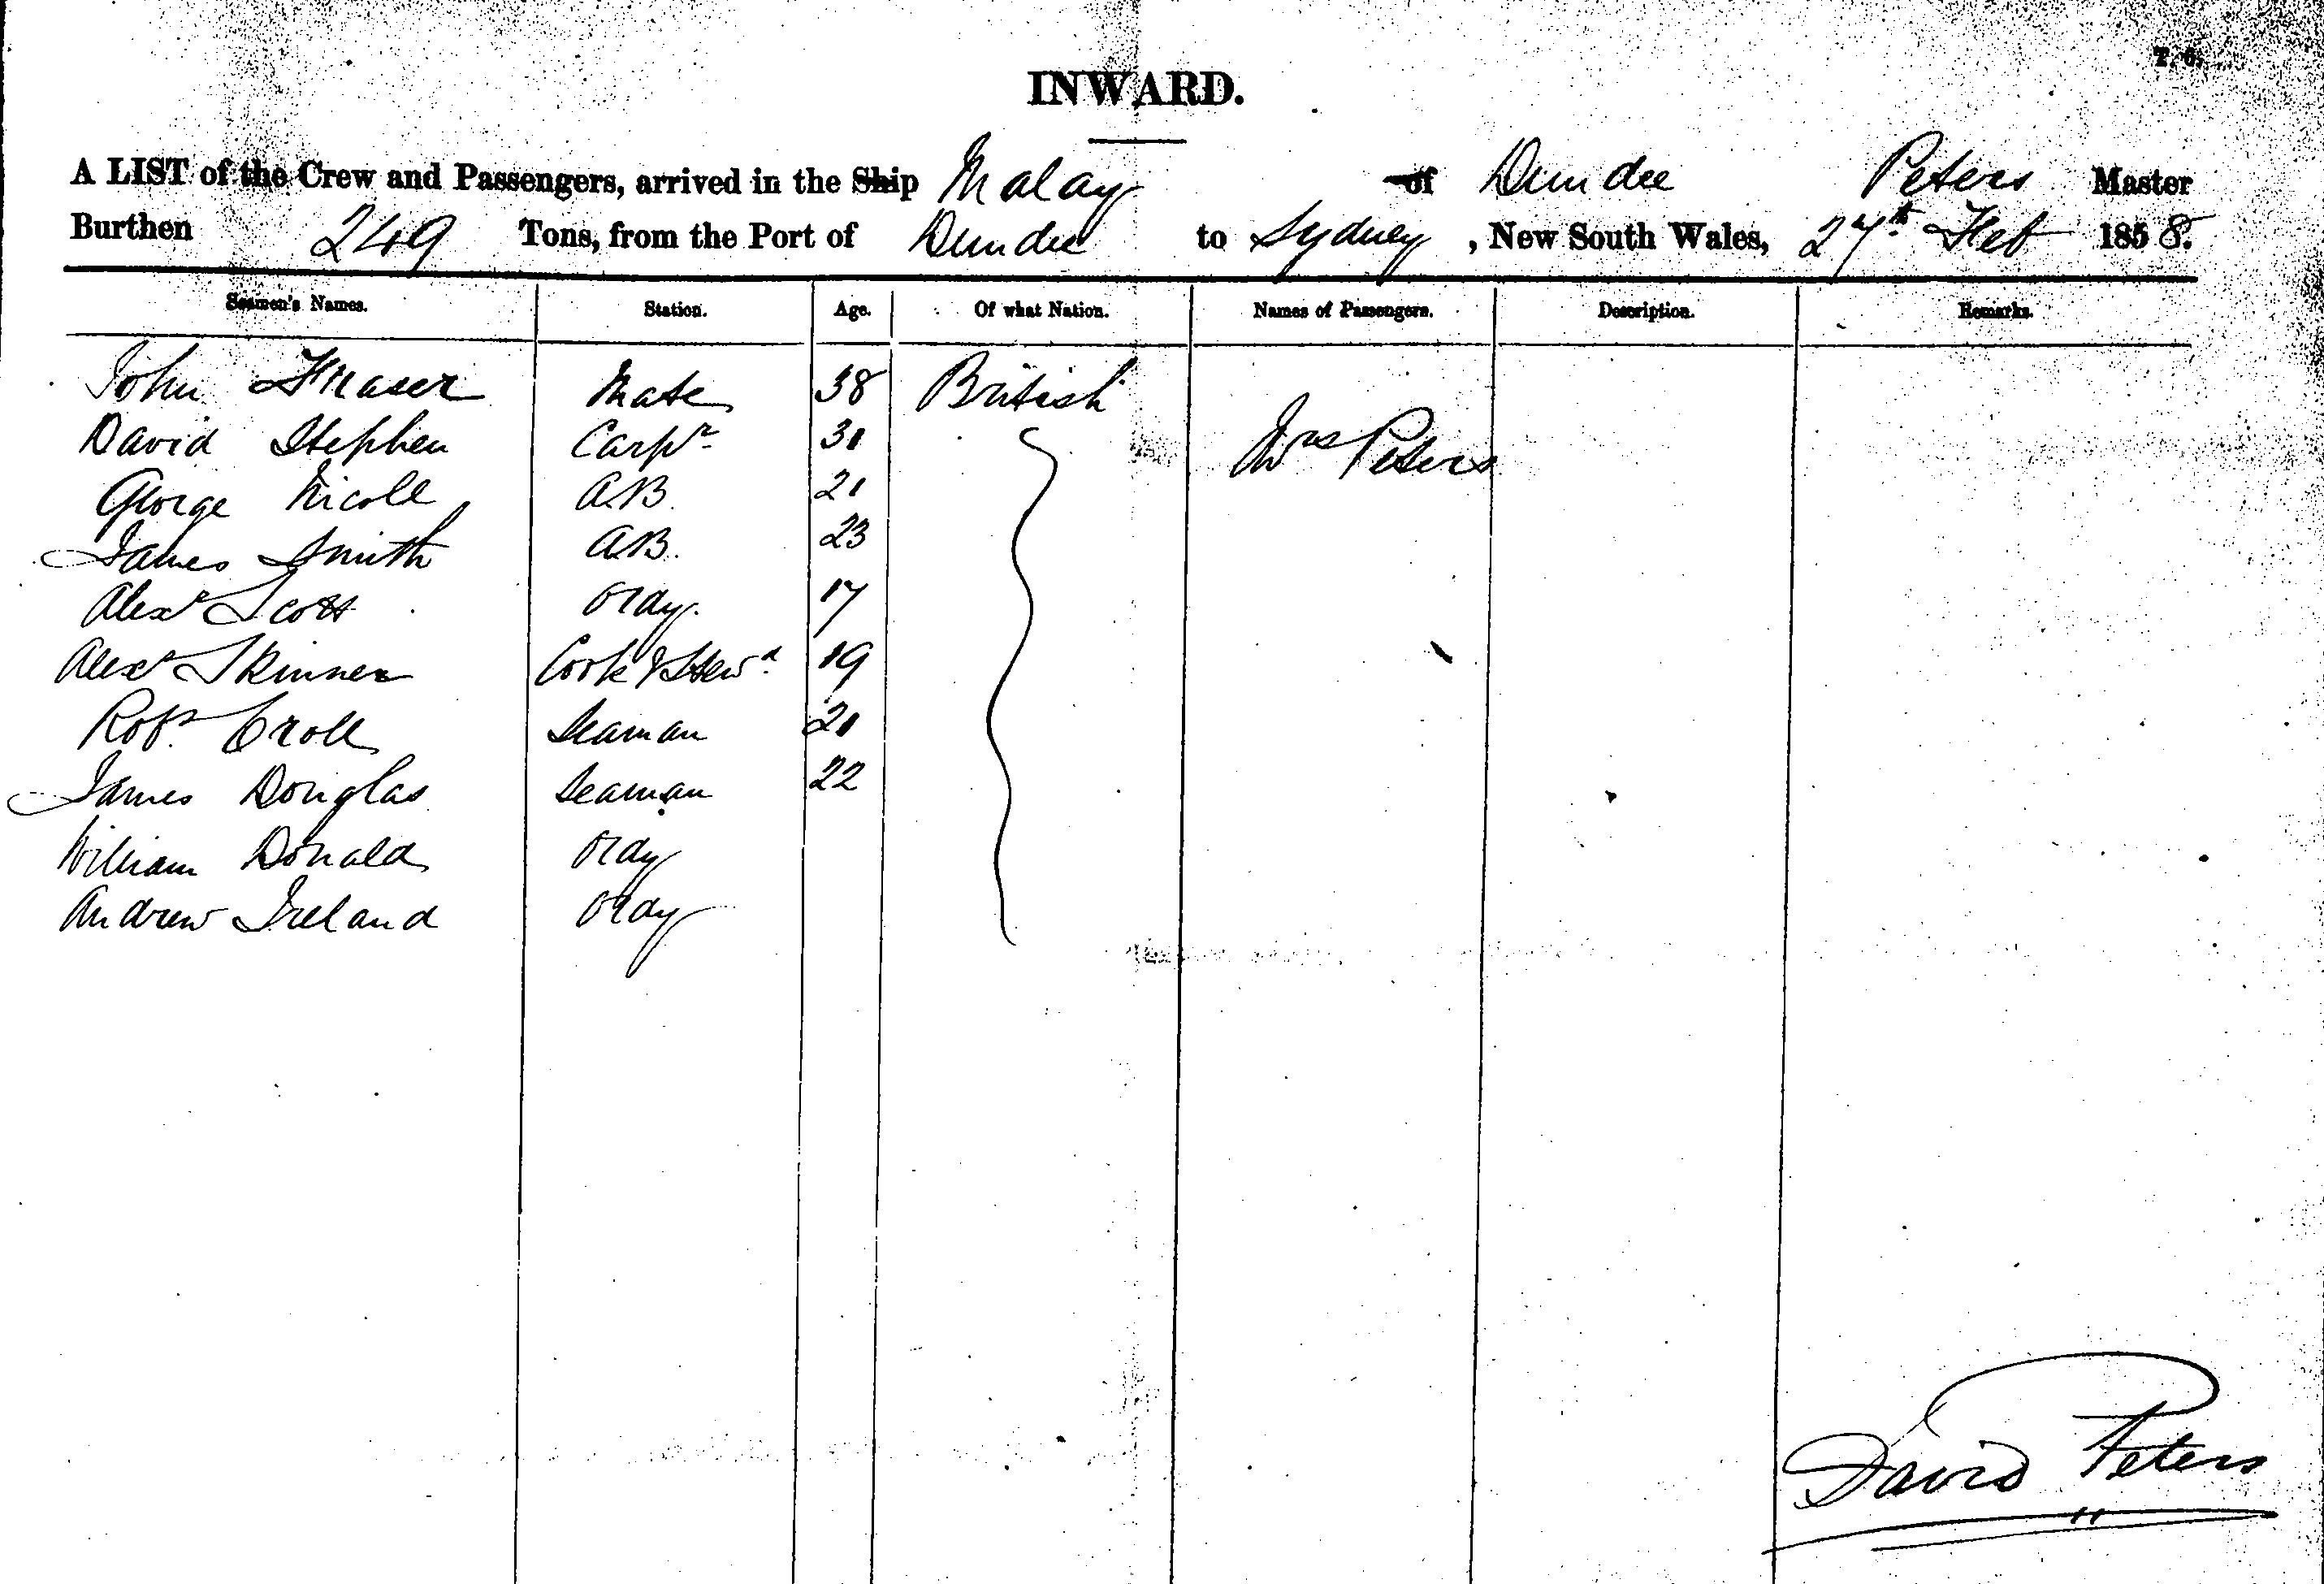 T. 6.
INWARD.
A LIST of the Crew and Passengers, arrived in the Ship Malay of Dundee Peters Master
Burthen 249 Tons, from the Port of Dundee to Sydney, New South Wales, 27th Feb 1858.
Seamen's Names. Station. Age. Of what Nation. Names of Passengers. Description. Remarks.
John Fraser Mate 38 British
David Stephen Carpr 31 Mrs Peters
George Nicoll AB. 21
James Smith AB. 23
Alexr Scott Ordy. 17
Alexr Skinner Cook & Stewd 19
Robt Croll Seaman 21
James Douglas Seaman 22
William Donald Ordy
Andrew Ireland Ordy
David Peters